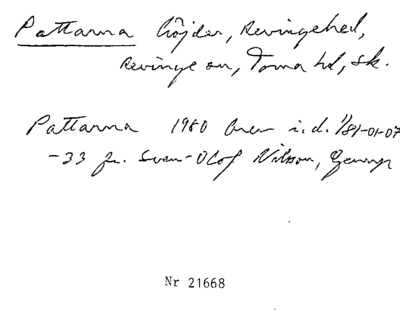 Pattarna höjder, Revingehed,
Revinge sn, Torna hd, Sk.
Pattarna 1980 i.d. 1/81-01-07
-33 fr. Sven-Olof Nilsson,
Nr 21668